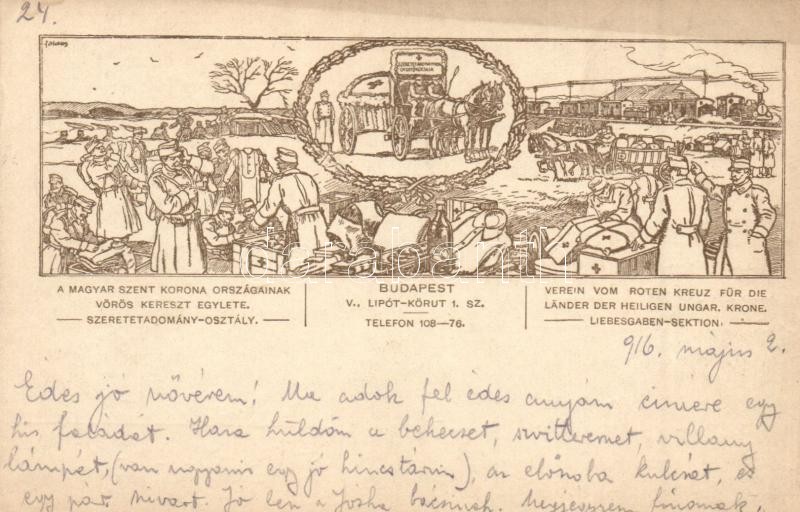 24.
SZERETETADOMÁNYOK
A MAGYAR SZENT KORONA ORSZÁGAINAK
VÖRÖS KERESZT EGYLETE.
SZERETETADOMÁNY-OSZTÁLY.
BUDAPEST
V., LIPÓT-KÖRUT 1. SZ.
TELEFON 108—76.
VEREIN VOM ROTEN KREUZ FÜR DIE
LÄNDER DER HEILIGEN UNGAR. KRONE.
LIEBESGABEN-SEKTION.
darabanth
916. május 2.
Édes jó nővérem! Ma adok fel édes anyám címére egy
kis faládát. Haza küldöm a bekecset, switteremet, villany
lámpát, (van ugyanis egy jó kincstárim), az előszoba kulcsát, és
egy pár szivart. Jó lesz a Jóska bácsinak. Megjegyzem finomak,